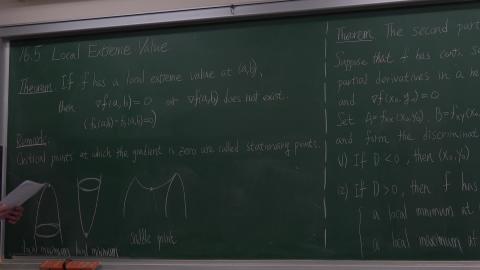 16.5 Local Extreme Value
Theorem. If f has a local extreme value at (a,b),
then ∇f(a,b)=0 or ∇f(a,b) does not exist.
(fx(a,b)=fy(a,b)=0)
Remark.
Critical points at which the gradient is zero are called stationary points.
local maximum local minimum
saddle point
Theorem. The second part
Suppose that f has conti. se
partial derivatives in a ne
and ∇f(x₀,y₀)=0
Set A=fxx(x₀,y₀). B=fxy(x₀
and form the discriminat
1) If D<0, then (x₀,y₀)
(2) If D>0, then f has
a local minimum at
a local maximum at